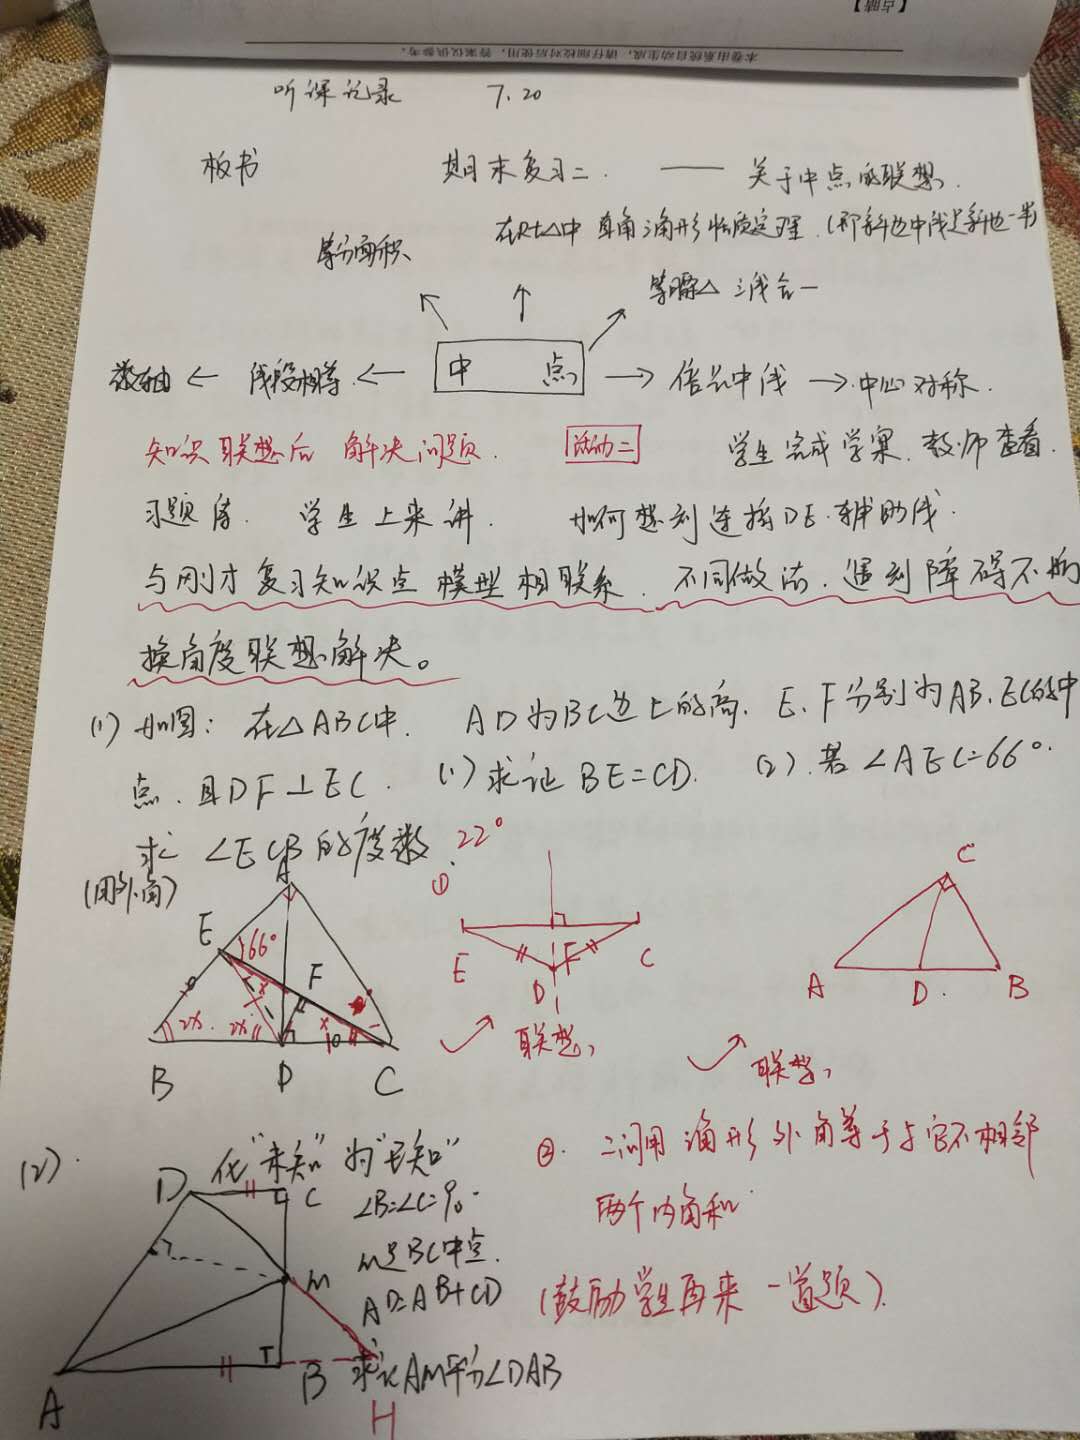 【点睛】
本卷由系统自动生成，请仔细校对后使用，答案仅供参考。
听课记录 7.20
板书 期末复习二 —— 关于中点的联想
在Rt△中 直角三角形性质定理（即斜边中线是斜边一半）
等分面积
等腰△ 三线合一
数轴 ← 线段相等 ← 中 点 → 倍长中线 → 中心对称
知识联想后 解决问题 活动二 学生完成学案 教师查看
习题后 学生上来讲 如何想到连接DE 辅助线
与刚才复习知识点 模型相联系 不同做法 遇到障碍不妨
换角度联想解决。
(1) 如图：在△ABC中 AD为BC边上的高 E、F分别为AB、EC的中
点 且DF⊥EC (1) 求证BE=CD (2) 若∠AEC=66°
求∠ECB的度数 22°
(用外角)
A
E 66° F
2x 2x x x
B D C
①
E F C
D
联想
C
A D B
联想
② 二问用三角形外角等于与它不相邻
两个内角和
(鼓励学生再来一道题)
(2) 化“未知”为“已知”
D C
∠B=∠C=90°
M是BC中点
M
AD=AB+CD
求证AM平分∠DAB
A B H